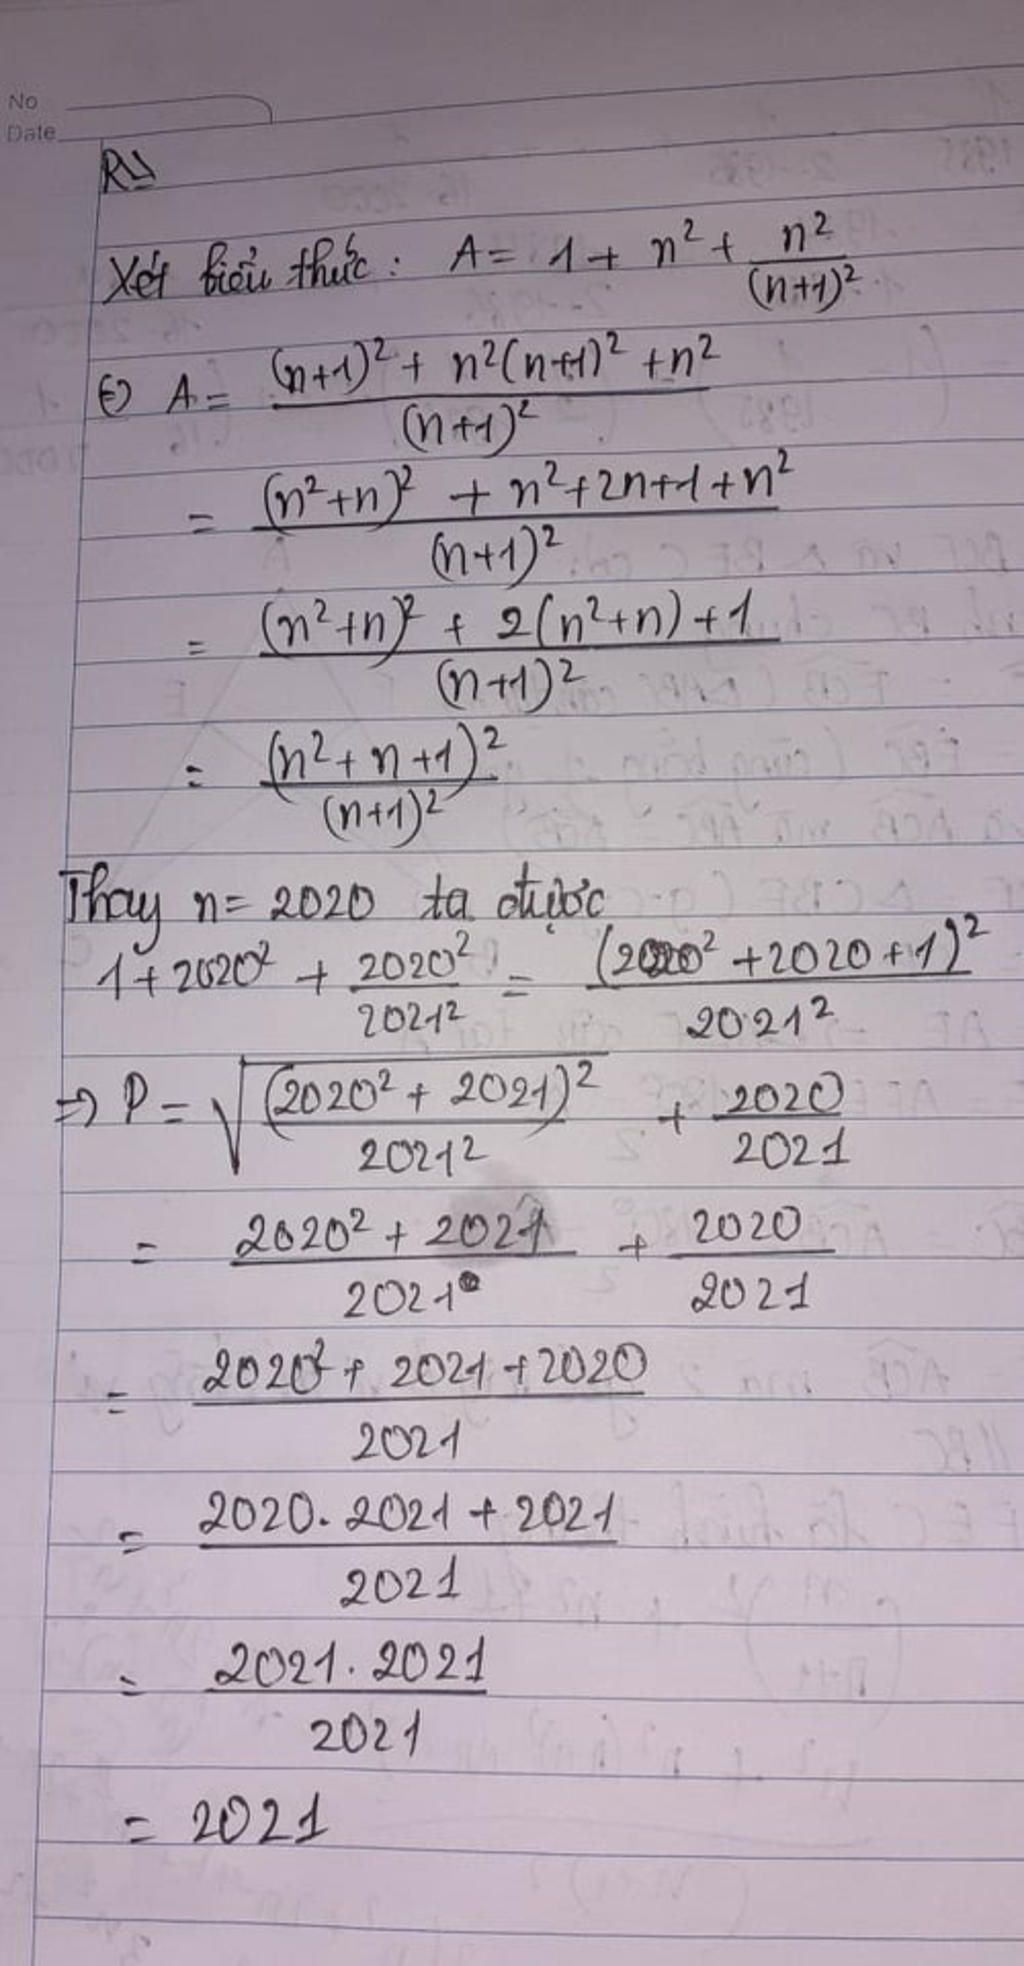 No
Date
Xét biểu thức: A = 1 + n² + n²/(n+1)²
A = ((n+1)² + n²(n+1)² + n²)/(n+1)²
= ((n²+n)² + n²+2n+1+n²)/(n+1)²
= ((n²+n)² + 2(n²+n)+1)/(n+1)²
= (n²+n+1)²/(n+1)²
Thay n = 2020 ta được
1 + 2020² + 2020²/2021² = (2020² + 2020 + 1)²/2021²
=> P = √((2020² + 2021)²/2021²) + 2020/2021
= (2020² + 2021)/2021 + 2020/2021
= (2020² + 2021 + 2020)/2021
= (2020. 2021 + 2021)/2021
= (2021. 2021)/2021
= 2021